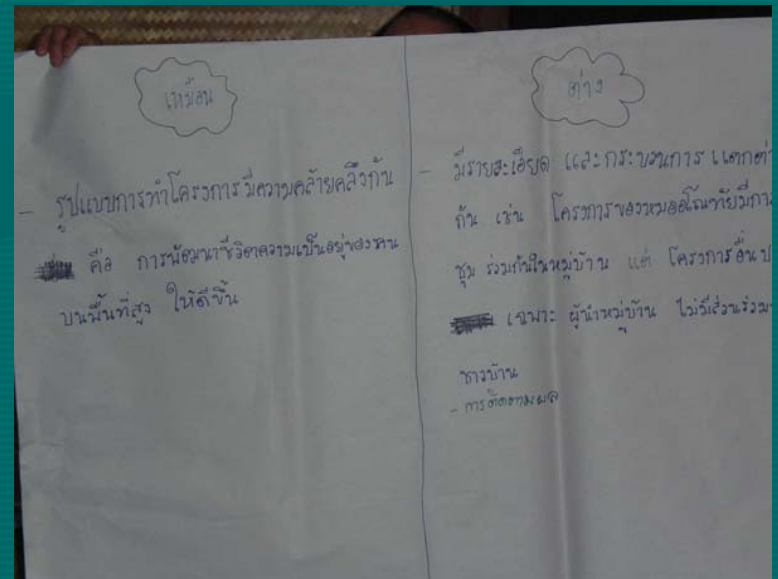 เหมือน
- รูปแบบการทำโครงการมีความคล้ายคลึงกัน
คือ การพัฒนาชีวิตความเป็นอยู่ของคน
บนพื้นที่สูง ให้ดีขึ้น
ต่าง
- มีรายละเอียด และกระบวนการ แตกต่า
กัน เช่น โครงการของหมออโณทัยมีกา
ชุม ร่วมกันในหมู่บ้าน แต่ โครงการอื่น ป
เฉพาะ ผู้นำหมู่บ้าน ไม่มีส่วนร่วม
ชาวบ้าน
- การติดตามผล